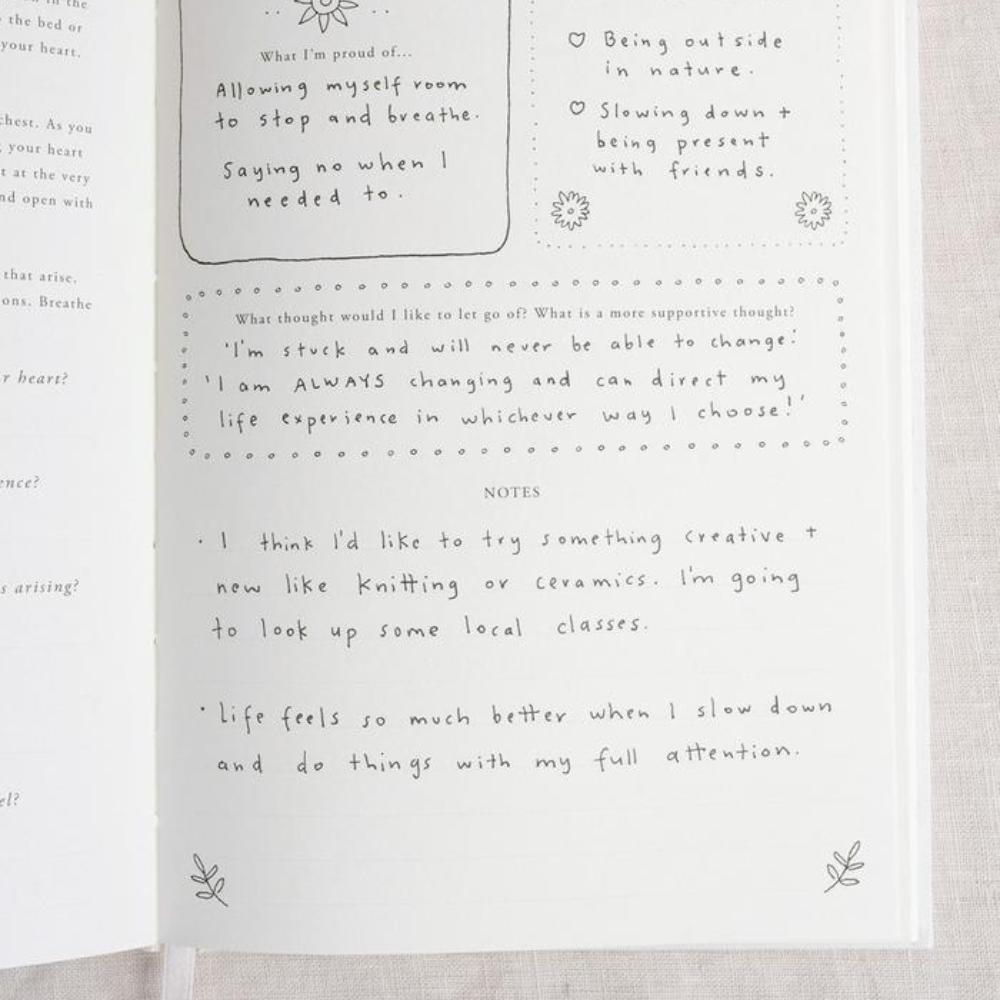 in the
the bed or
your heart.
chest. As you
your heart
at the very
and open with
that arise.
Breathe
heart?
arising?
What I'm proud of...
Allowing myself room
to stop and breathe.
Saying no when I
needed to.
♡ Being outside
in nature.
♡ Slowing down +
being present
with friends.
What thought would I like to let go of? What is a more supportive thought?
'I'm stuck and will never be able to change.'
'I am ALWAYS changing and can direct my
life experience in whichever way I choose!'
NOTES
· I think I'd like to try something creative +
new like knitting or ceramics. I'm going
to look up some local classes.
· Life feels so much better when I slow down
and do things with my full attention.